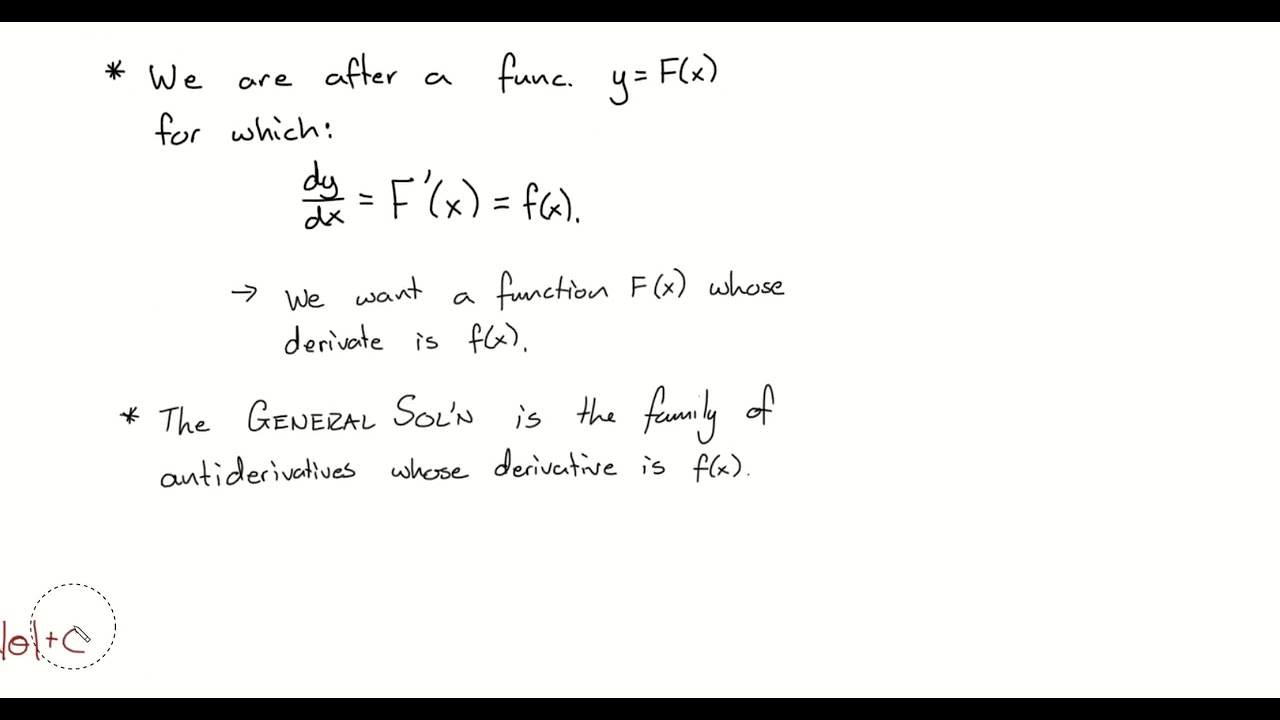 * We are after a func. y = F(x)
for which:
dy/dx = F'(x) = f(x).
→ We want a function F(x) whose
derivate is f(x).
* The GENERAL SOL'N is the family of
antiderivatives whose derivative is f(x).
|θ|+C